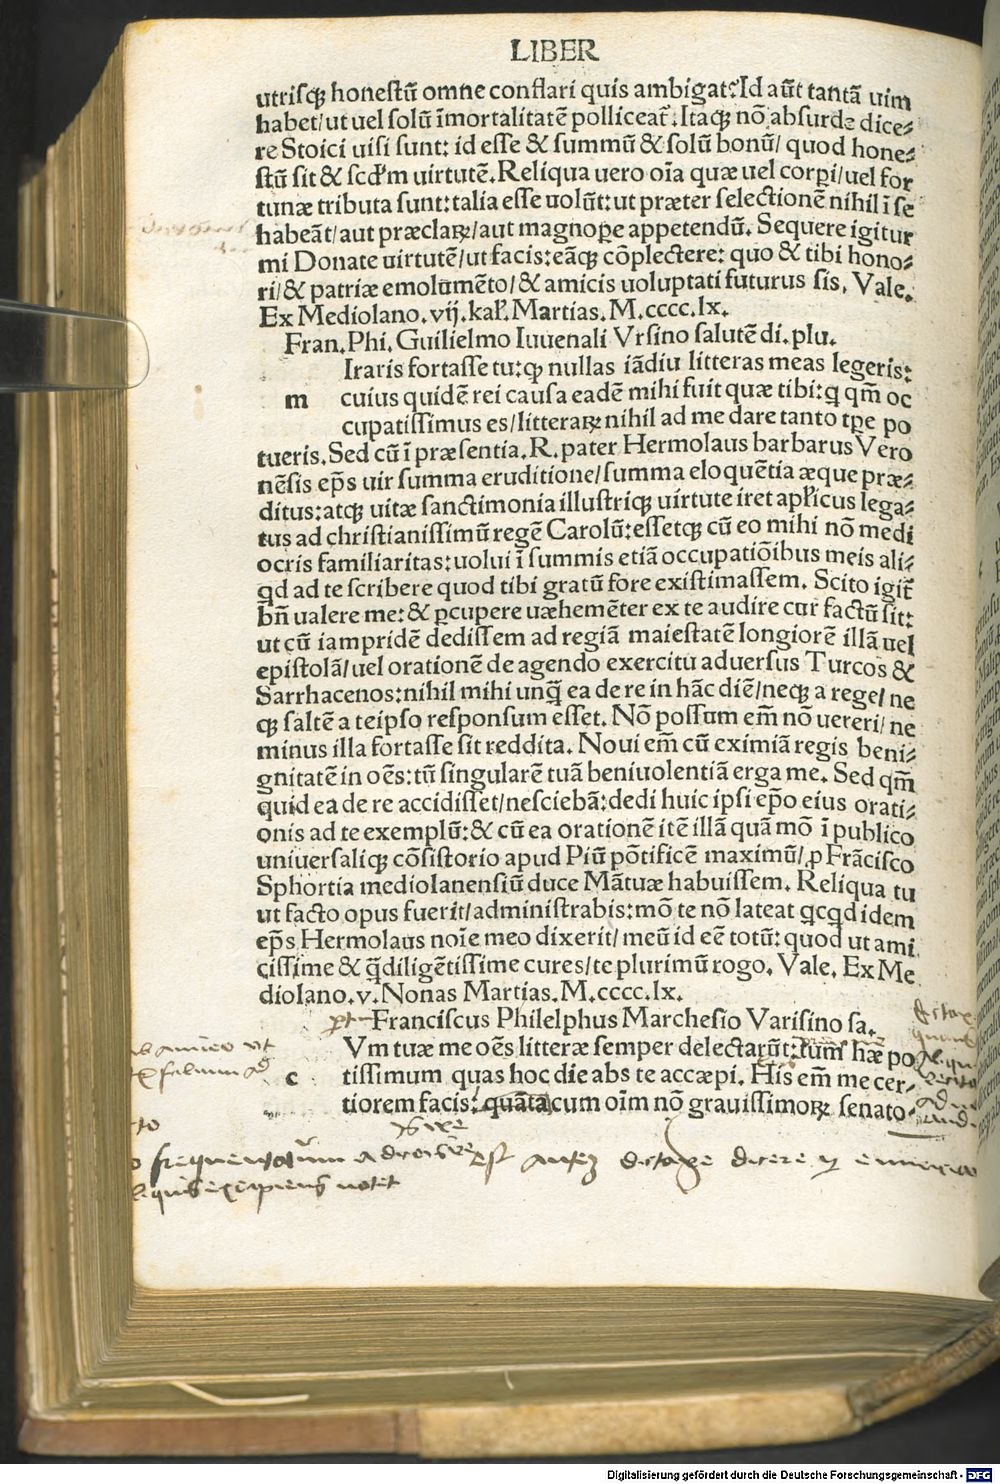 LIBER
utriſqꝫ honeſtū omne conflari quis ambigat? Id aūt tantā uim
habet/ut uel ſolū īmortalitatē polliceat᷑. Itaqꝫ nō abſurde dice⸗
re Stoici uiſi ſunt: id eſſe & ſummū & ſolū bonū/ quod hone⸗
ſtū ſit & ſcd̓m uirtutē. Reliqua uero oīa quæ uel corꝑi/uel for
tunæ tributa ſunt: talia eſſe uolūt: ut præter ſelectionē nihil ī ſe
habeāt/aut præclaꝝ/aut magnoꝑe appetendū. Sequere igitur
mi Donate uirtutē/ut facis: eāqꝫ cōplectere: quo & tibi hono⸗
ri/& patriæ emolumēto/& amicis uoluptati futurus ſis. Vale.
Ex Mediolano. vij. kal̓. Martias. M. cccc. lx.
Fran. Phi. Guilielmo Iuuenali Vrſino ſalutē di. plu.
Iraris fortaſſe tu: ꝙ nullas iādiu litteras meas legeris:
m cuius quidē rei cauſa eadē mihi fuit quæ tibi: ꝗ qm̄ oc
cupatiſſimus es/litteraꝝ nihil ad me dare tanto tꝑe po
tueris. Sed cū ī præſentia. R. pater Hermolaus barbarus Vero
nēſis ep̄s uir ſumma eruditione/ſumma eloquētia æque præ⸗
ditus: atqꝫ uitæ ſanctimonia illuſtriqꝫ uirtute iret apl̓icus lega⸗
tus ad chriſtianiſſimū regē Carolū: eſſetqꝫ cū eo mihi nō medi
ocris familiaritas: uolui ī ſummis etiā occupatiōibus meis ali⸗
qd ad te ſcribere quod tibi gratū fore exiſtimaſſem. Scito igit᷑
bn̄ ualere me: & ꝑcupere uæhemēter ex te audire cur factū ſit:
ut cū iampridē dediſſem ad regiā maieſtatē longiorē illā uel
epiſtolā/uel orationē de agendo exercitu aduerſus Turcos &
Sarrhacenos: nihil mihi unq̄ ea de re in hāc diē/neqꝫ a rege/ ne
qꝫ ſaltē a teipſo reſponſum eſſet. Nō poſſum em̄ nō uereri/ ne
minus illa fortaſſe ſit reddita. Noui em̄ cū eximiā regis beni⸗
gnitatē in oēs: tū ſingularē tuā beniuolentiā erga me. Sed qm̄
quid ea de re accidiſſet/neſciebā: dedi huic ipſi ep̄o eius orati⸗
onis ad te exemplū: & cū ea orationē itē illā quā mō ī publico
uniuerſaliqꝫ cōſiſtorio apud Piū pōtificē maximū/ ꝓ Frāciſco
Sphortia mediolanenſiū duce Mātuæ habuiſſem. Reliqua tu
ut facto opus fuerit/adminiſtrabis: mō te nō lateat ꝗcꝗd idem
ep̄s Hermolaus noīe meo dixerit/ meū id eē totū: quod ut ami
ciſſime & q̄diligētiſſime cures/te plurimū rogo. Vale. Ex Me
diolano. v. Nonas Martias. M. cccc. lx.
Franciſcus Philelphus Marcheſio Variſino ſa.
Vm tuæ me oēs litteræ ſemper delectarūt: tum hæ po
c tiſſimum quas hoc die abs te accæpi. His em̄ me cer⸗
tiorem facis: quāta cum oīm nō grauiſſimoꝝ ſenato⸗
Digitalisierung gefördert durch die Deutsche Forschungsgemeinschaft - DFG